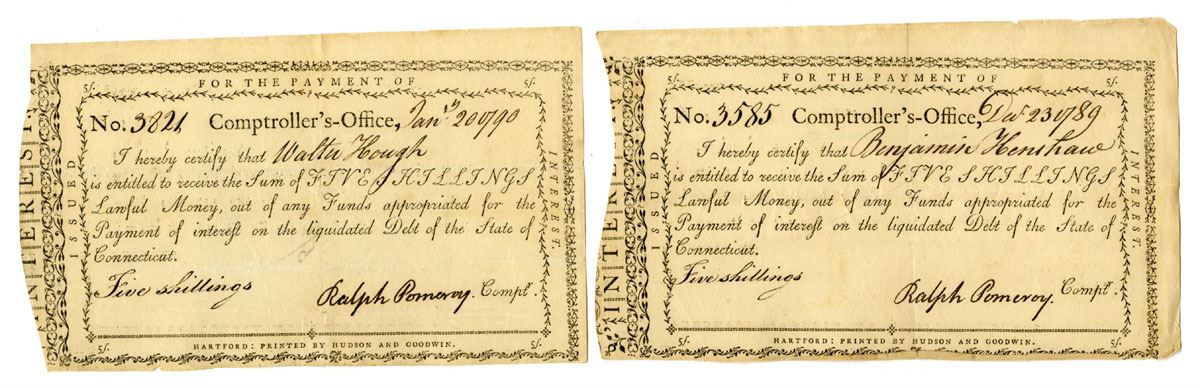 FOR THE PAYMENT OF
5/. 5/.
No. 3821 Comptroller's-Office, Jany 20 1790
I hereby certify that Walter Hough
is entitled to receive the Sum of FIVE SHILLINGS
Lawful Money, out of any Funds appropriated for the
Payment of interest on the liquidated Debt of the State of
Connecticut.
Five shillings
Ralph Pomeroy. Compt.
5/. 5/.
HARTFORD: PRINTED BY HUDSON AND GOODWIN.
ISSUED
INTEREST.
INTEREST
FOR THE PAYMENT OF
5/. 5/.
No. 3585 Comptroller's-Office, Decr 23 1789
I hereby certify that Benjamin Henshaw
is entitled to receive the Sum of FIVE SHILLINGS
Lawful Money, out of any Funds appropriated for the
Payment of interest on the liquidated Debt of the State of
Connecticut.
Five shillings
Ralph Pomeroy. Compt.
5/. 5/.
HARTFORD: PRINTED BY HUDSON AND GOODWIN.
ISSUED
INTEREST.